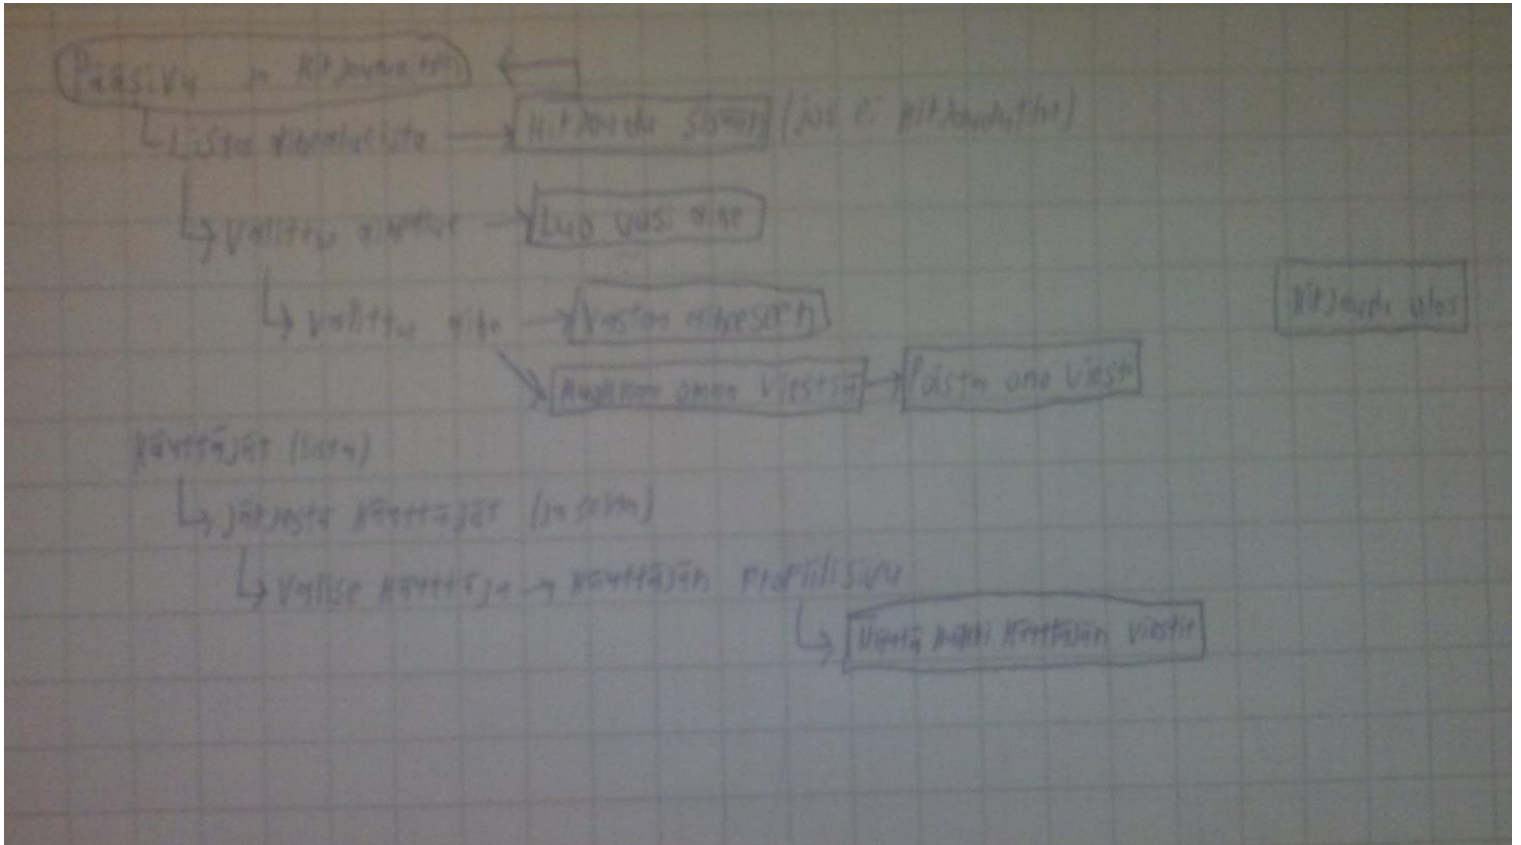 Pääsivu ja kirjautuminen
Listaa aihealueista Kirjaudu sisään (jos ei kirjauduttu)
Valittu aihealue Luo uusi aihe
Valittu aihe Vastaa aiheeseen
Kirjaudu ulos
Muokkaa omaa viestiä Poista oma viesti
Käyttäjät (lista)
Järjestä käyttäjät (ja )
Valitse käyttäjä käyttäjän profiilisivu
käyttäjän viestit